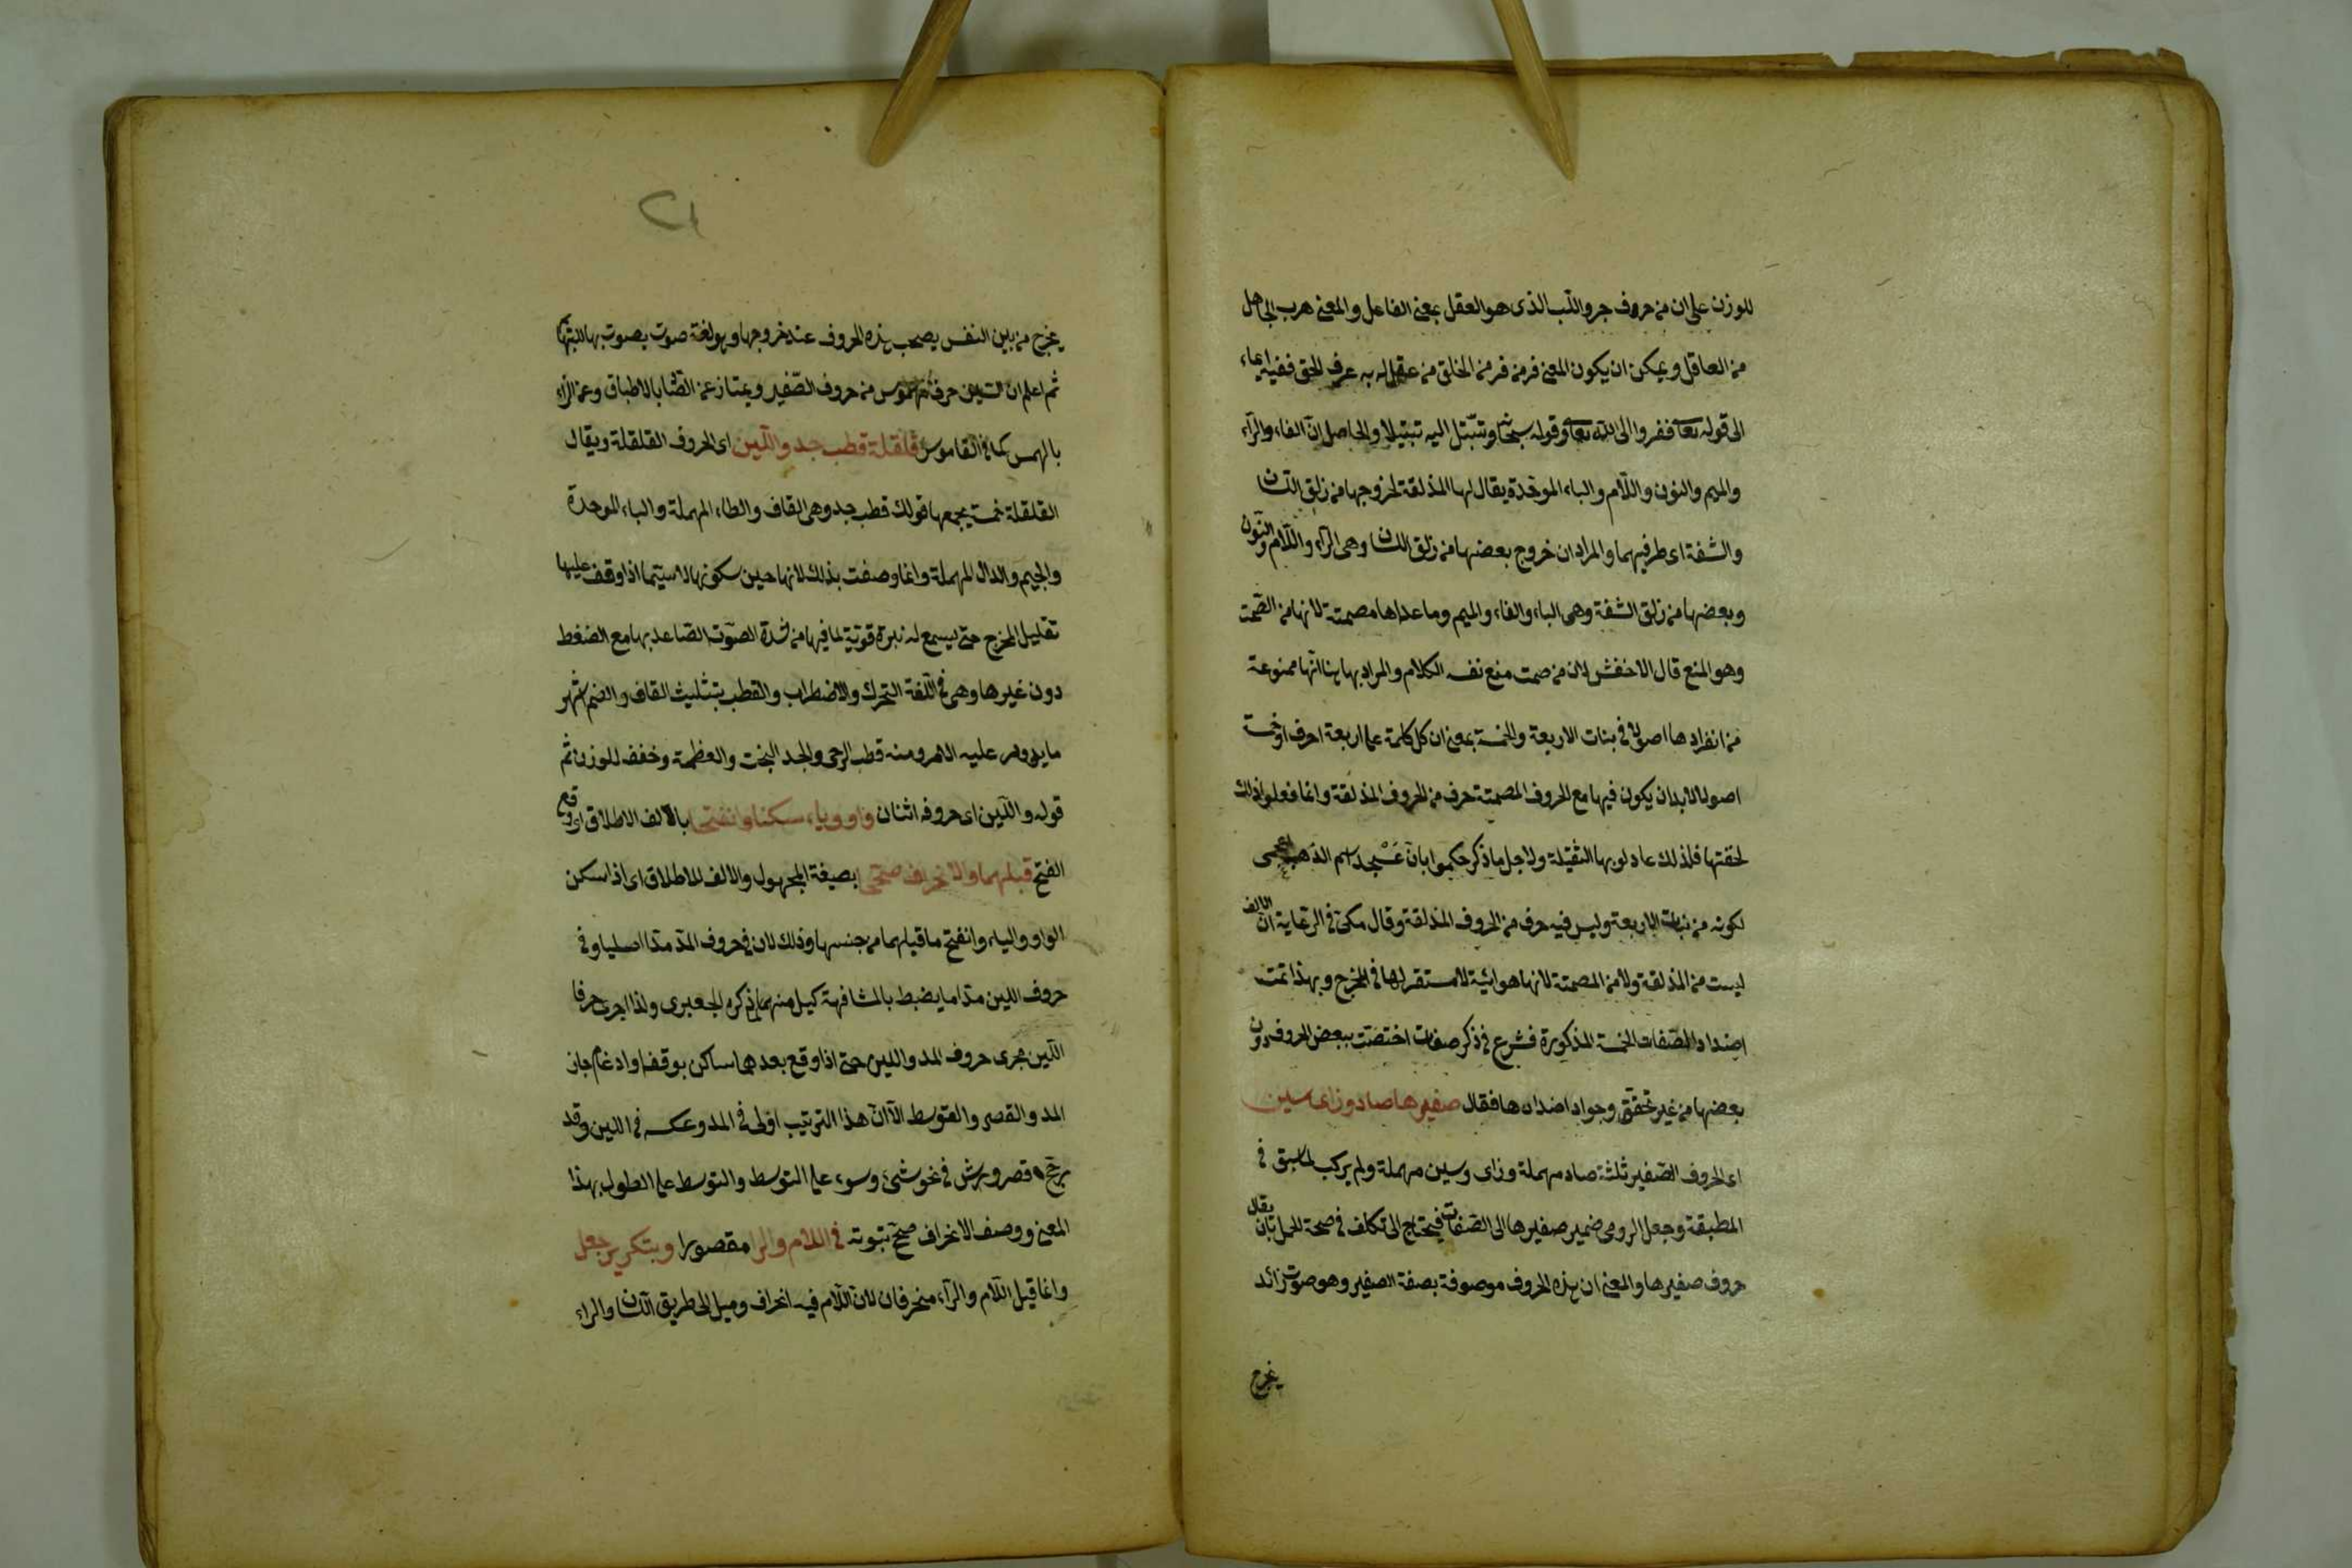 للوزن على ان من حروف جر واللب الذى هو العقل بمعنى الفاعل والمعنى هرب الجاهل
من العاقل ويمكن ان يكون المعنى فر من فر من الخلق من عقل له به عرف الحق ففيه ايماء
الى قوله تعا ففروا الى الله تعا وقوله سبحا وتبتل اليه تبتيلا والحاصل ان الفاء والراء
والميم والنون واللام والباء الموحدة يقال لها المذلقة لخروجها من زلق اللسان
والشفة اى طرفيهما والمراد ان خروج بعضها من زلق اللسان وهى الراء واللام والنون
وبعضها من زلق الشفة وهى الباء والفاء والميم وما عداها مصمتة لانها من الصمت
وهو المنع قال الاخفش لان من صمت منع نفسه الكلام والمراد بها هنا انها ممنوعة
من انفرادها اصولا فى بنات الاربعة والخمسة بمعنى ان كل كلمة على اربعة احرف او خمسة
اصولا لا بد ان يكون فيها مع الحروف المصمتة حرف من الحروف المذلقة وانما فعلوا ذلك
لخفتها فلذلك عادلوا بها الثقيلة ولاجل ما ذكر حكموا بان عسجد اسم الذهب اعجمى
لكونه من بنات الاربعة وليس فيه حرف من الحروف المذلقة وقال مكى فى الرعاية ان الالف
ليست من المذلقة ولا من المصمتة لانها هوائية لا مستقر لها فى المخرج وبهذا تمت
اضداد الصفات الخمسة المذكورة فشرع فى ذكر صفات اختصت ببعض الحروف دون
بعضها من غير تحقق وجود اضدادها فقال صفيرها صاد وزاى سين
اى الحروف الصفير ثلثة صاد مهملة وزاى وسين مهملة ولم يركب لما سبق فى
المطبقة وجعل الرومى ضمير صفيرها الى الصفات فيحتاج الى تكلف فى صحة الحمل بان يقال
حروف صفيرها والمعنى ان هذه الحروف موصوفة بصفة الصفير وهو صوت زائد
يخرج
٢١
يخرج من بين النفس يصحب هذه الحروف عند خروجها وهو لغة صوت يصوت بها للبهائم
ثم اعلم ان السين حرف مهموس من حروف الصفير ويمتاز عن الصاد بالاطباق وعن الزاء
بالهمس كما فى القاموس قلقلة قطب جد واللين اى الحروف القلقلة ويقال
القلقلة خمسة يجمعها قولك قطب جد وهى القاف والطاء المهملة والباء الموحدة
والجيم والدال المهملة وانما وصفت بذلك لانها حين سكونها لا سيما اذا وقف عليها
تقلقل المخرج حتى يسمع له نبرة قوية لما فيها من شدة الصوت الصاعد بها مع الضغط
دون غيرها وهى فى اللغة التحرك والاضطراب والقطب بتثليث القاف والضم اشهر
ما يدور عليه الامر ومنه قطب الرحى والجد البخت والعظمة وخفف للوزن ثم
قوله واللين اى حروفه اثنان واو وياء سكنا وانفتحا بالالف الاطلاق اى وقع
الفتح قبلهما والانحراف صححا بصيغة المجهول والالف للاطلاق اى اذا سكن
الواو والياء وانفتح ما قبلهما من جنسها وذلك لان فى حروف المد مدا اصليا وفى
حروف اللين مدا ما يضبط بالمشافهة كيل منهما ذكره الجعبرى ولذا اجرى حرفا
اللين مجرى حروف المد واللين حتى اذا وقع بعدهما ساكن بوقف او ادغام جاز
المد والقصر والتوسط الا ان هذا الترتيب اولى فى المد وعكسه فى اللين وقد
رجح قصر ورش فى نحو شئ وسوء على التوسط والتوسط على الطول بهذا
المعنى ووصف الانحراف صح ثبوته فى اللام والرا مقصورا وبتكرير جعل
وانما قيل اللام والراء منحرفان لان اللام فيه انحراف وميل الى طريق اللسان والراء